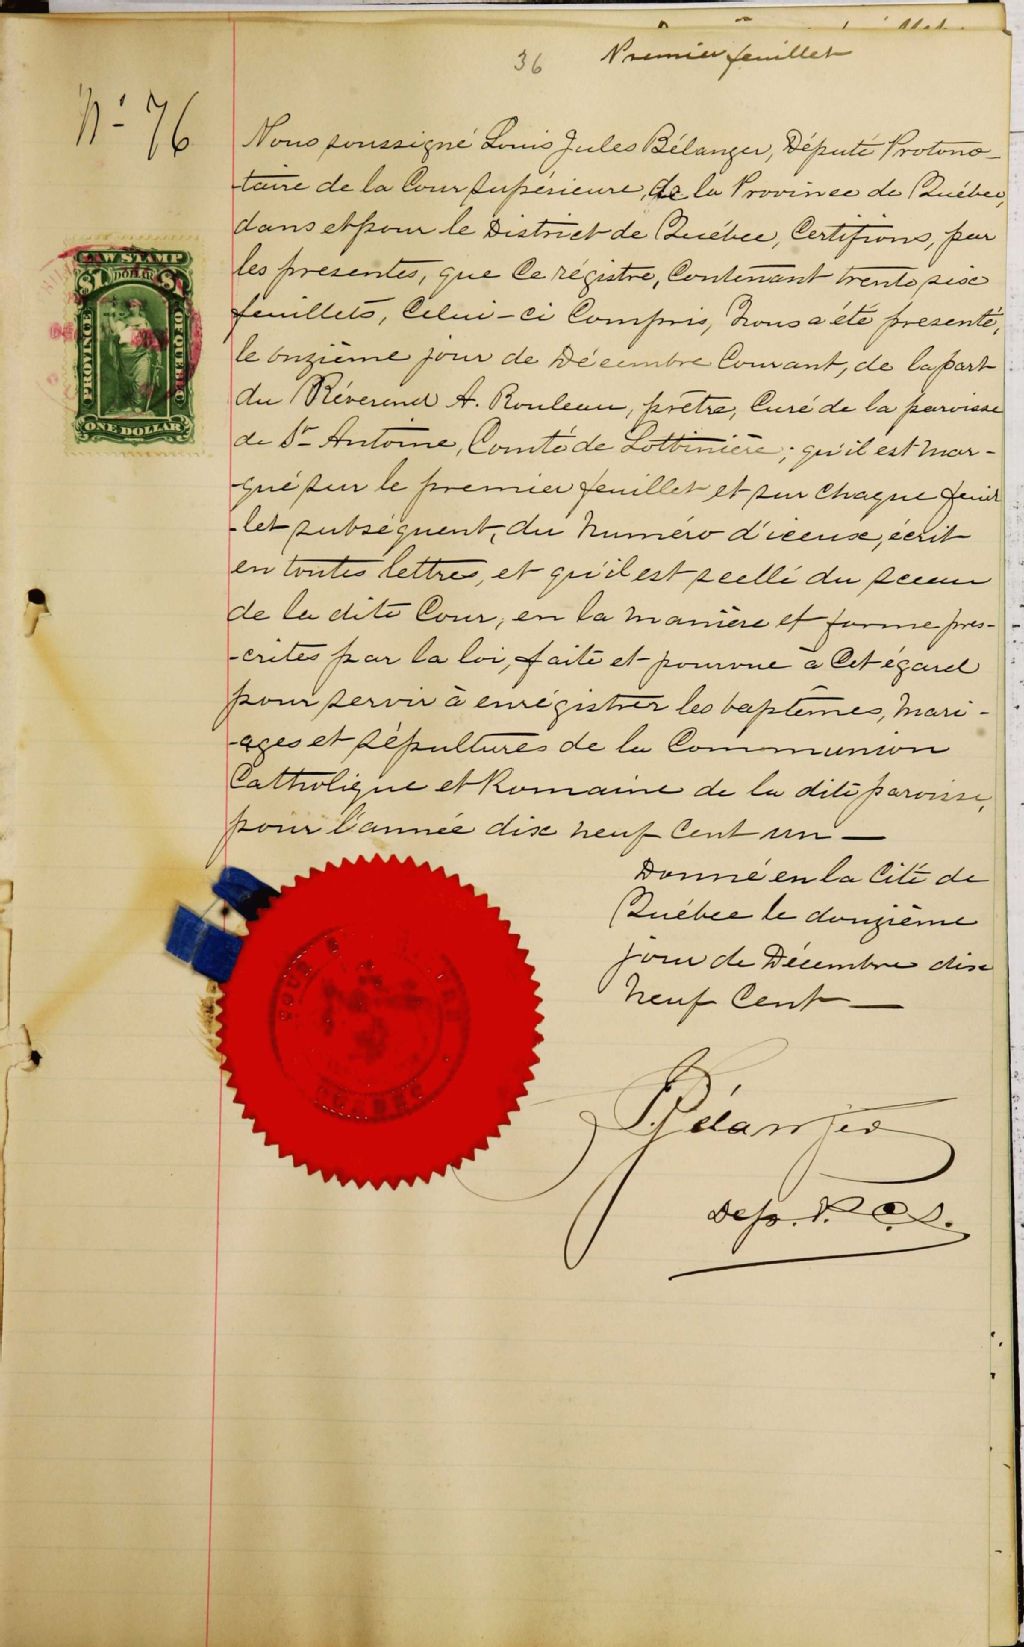 36
Premier feuillet
No 76
Nous soussigné Louis Jules Bélanger, Député Protono-
-taire de la Cour Supérieure, de la Province de Québec,
dans et pour le District de Québec, Certifions, par
les presentes, que Ce régistre, Contenant trente six
feuillets, Celui-ci Compris, Nous a été presenté,
le onzième jour de Décembre Courant, de la part
du Révérend A. Rouleau, prêtre, Curé de la paroisse
de St Antoine, Comté de Lotbinière; qu'il est mar-
-qué sur le premier feuillet et sur chaque feuil
-let subséquent, du Numéro d'iceux, écrit
en toutes lettres, et qu'il est scellé du sceau
de la dite Cour, en la manière et forme pres-
-crites par la loi, faite et pourvue à Cet égard
pour servir à enrégistrer les baptêmes, Mari-
-ages et Sépultures de la Communion
Catholique et Romaine de la dite paroisse,
pour l'année dix neuf Cent un —
Donné en la Cité de
Québec le douzième
jour de Décembre dix
Neuf Cent —
Bélanger
Dep. P. C. S.
LAW STAMP
$1 DOLLAR $1
PROVINCE
OF QUEBEC
ONE DOLLAR
COUR S
QUEBEC